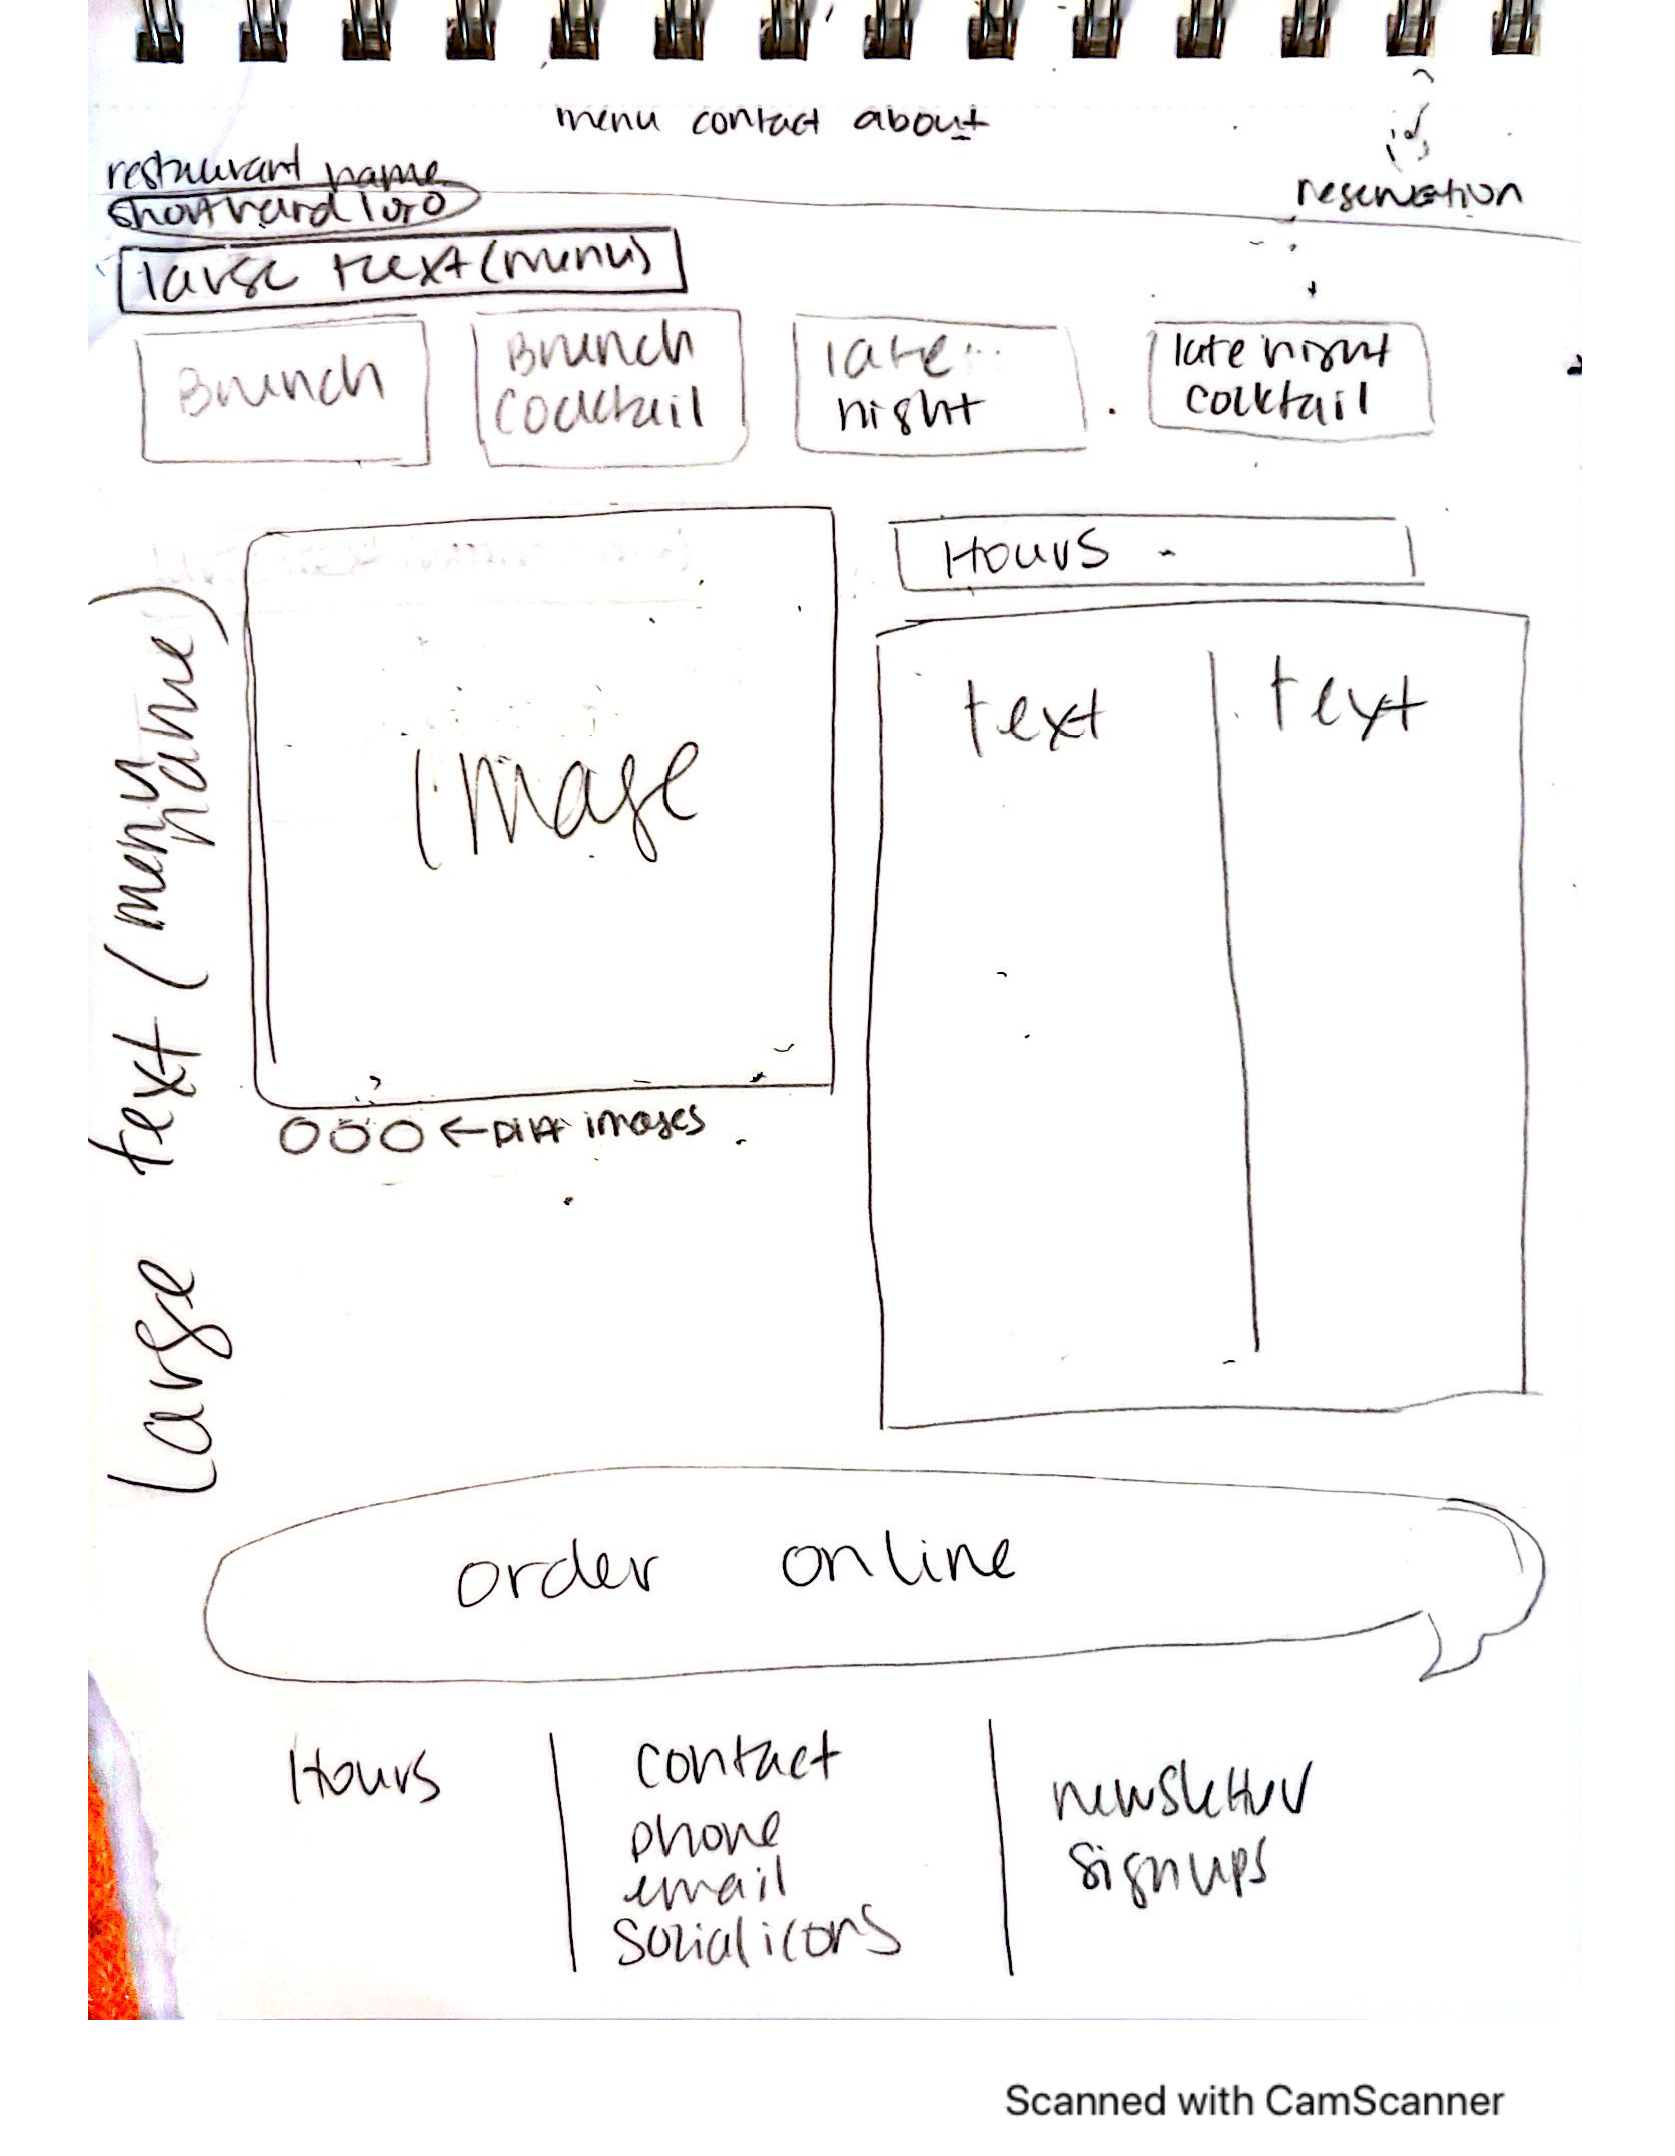 menu contact about
restaurant name
shorthand logo
reservation
large text (menu)
Brunch
Brunch
Cocktail
late
night
late night
cocktail
Large text (menu
name)
Image
← Diff images
Hours
text
text
order online
Hours
contact
phone
email
Social icons
newsletter
signups
Scanned with CamScanner